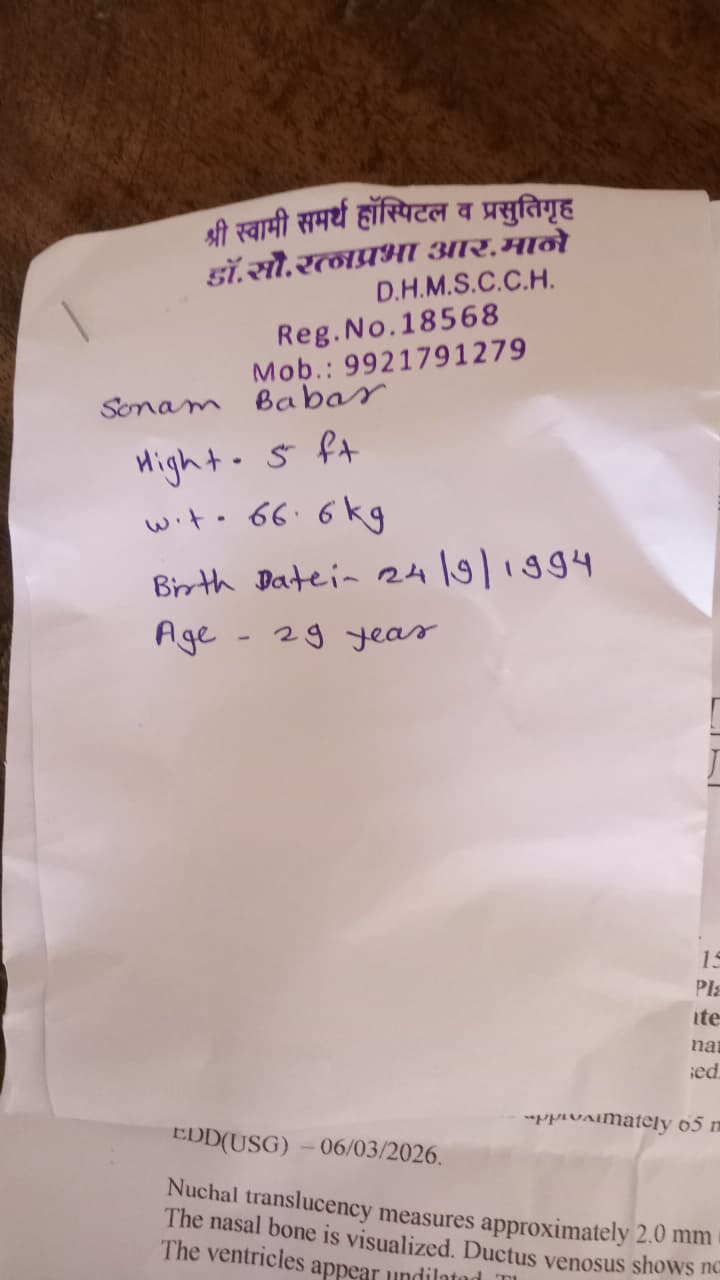 श्री स्वामी समर्थ हॉस्पिटल व प्रसुतिगृह
डॉ.सौ.रत्नप्रभा आर.माने
D.H.M.S.C.C.H.
Reg.No.18568
Mob.: 9921791279
Sonam Babar
Hight. 5 ft
w.t. 66.6kg
Birth Date:- 24/9/1994
Age - 29 year
approximately 65
EDD(USG) – 06/03/2026.
Nuchal translucency measures approximately 2.0 mm
The nasal bone is visualized. Ductus venosus shows
The ventricles appear undilated.